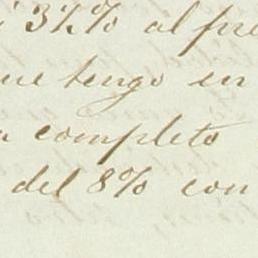 3½% al pre
ue tengo en
a completo
del 8% con